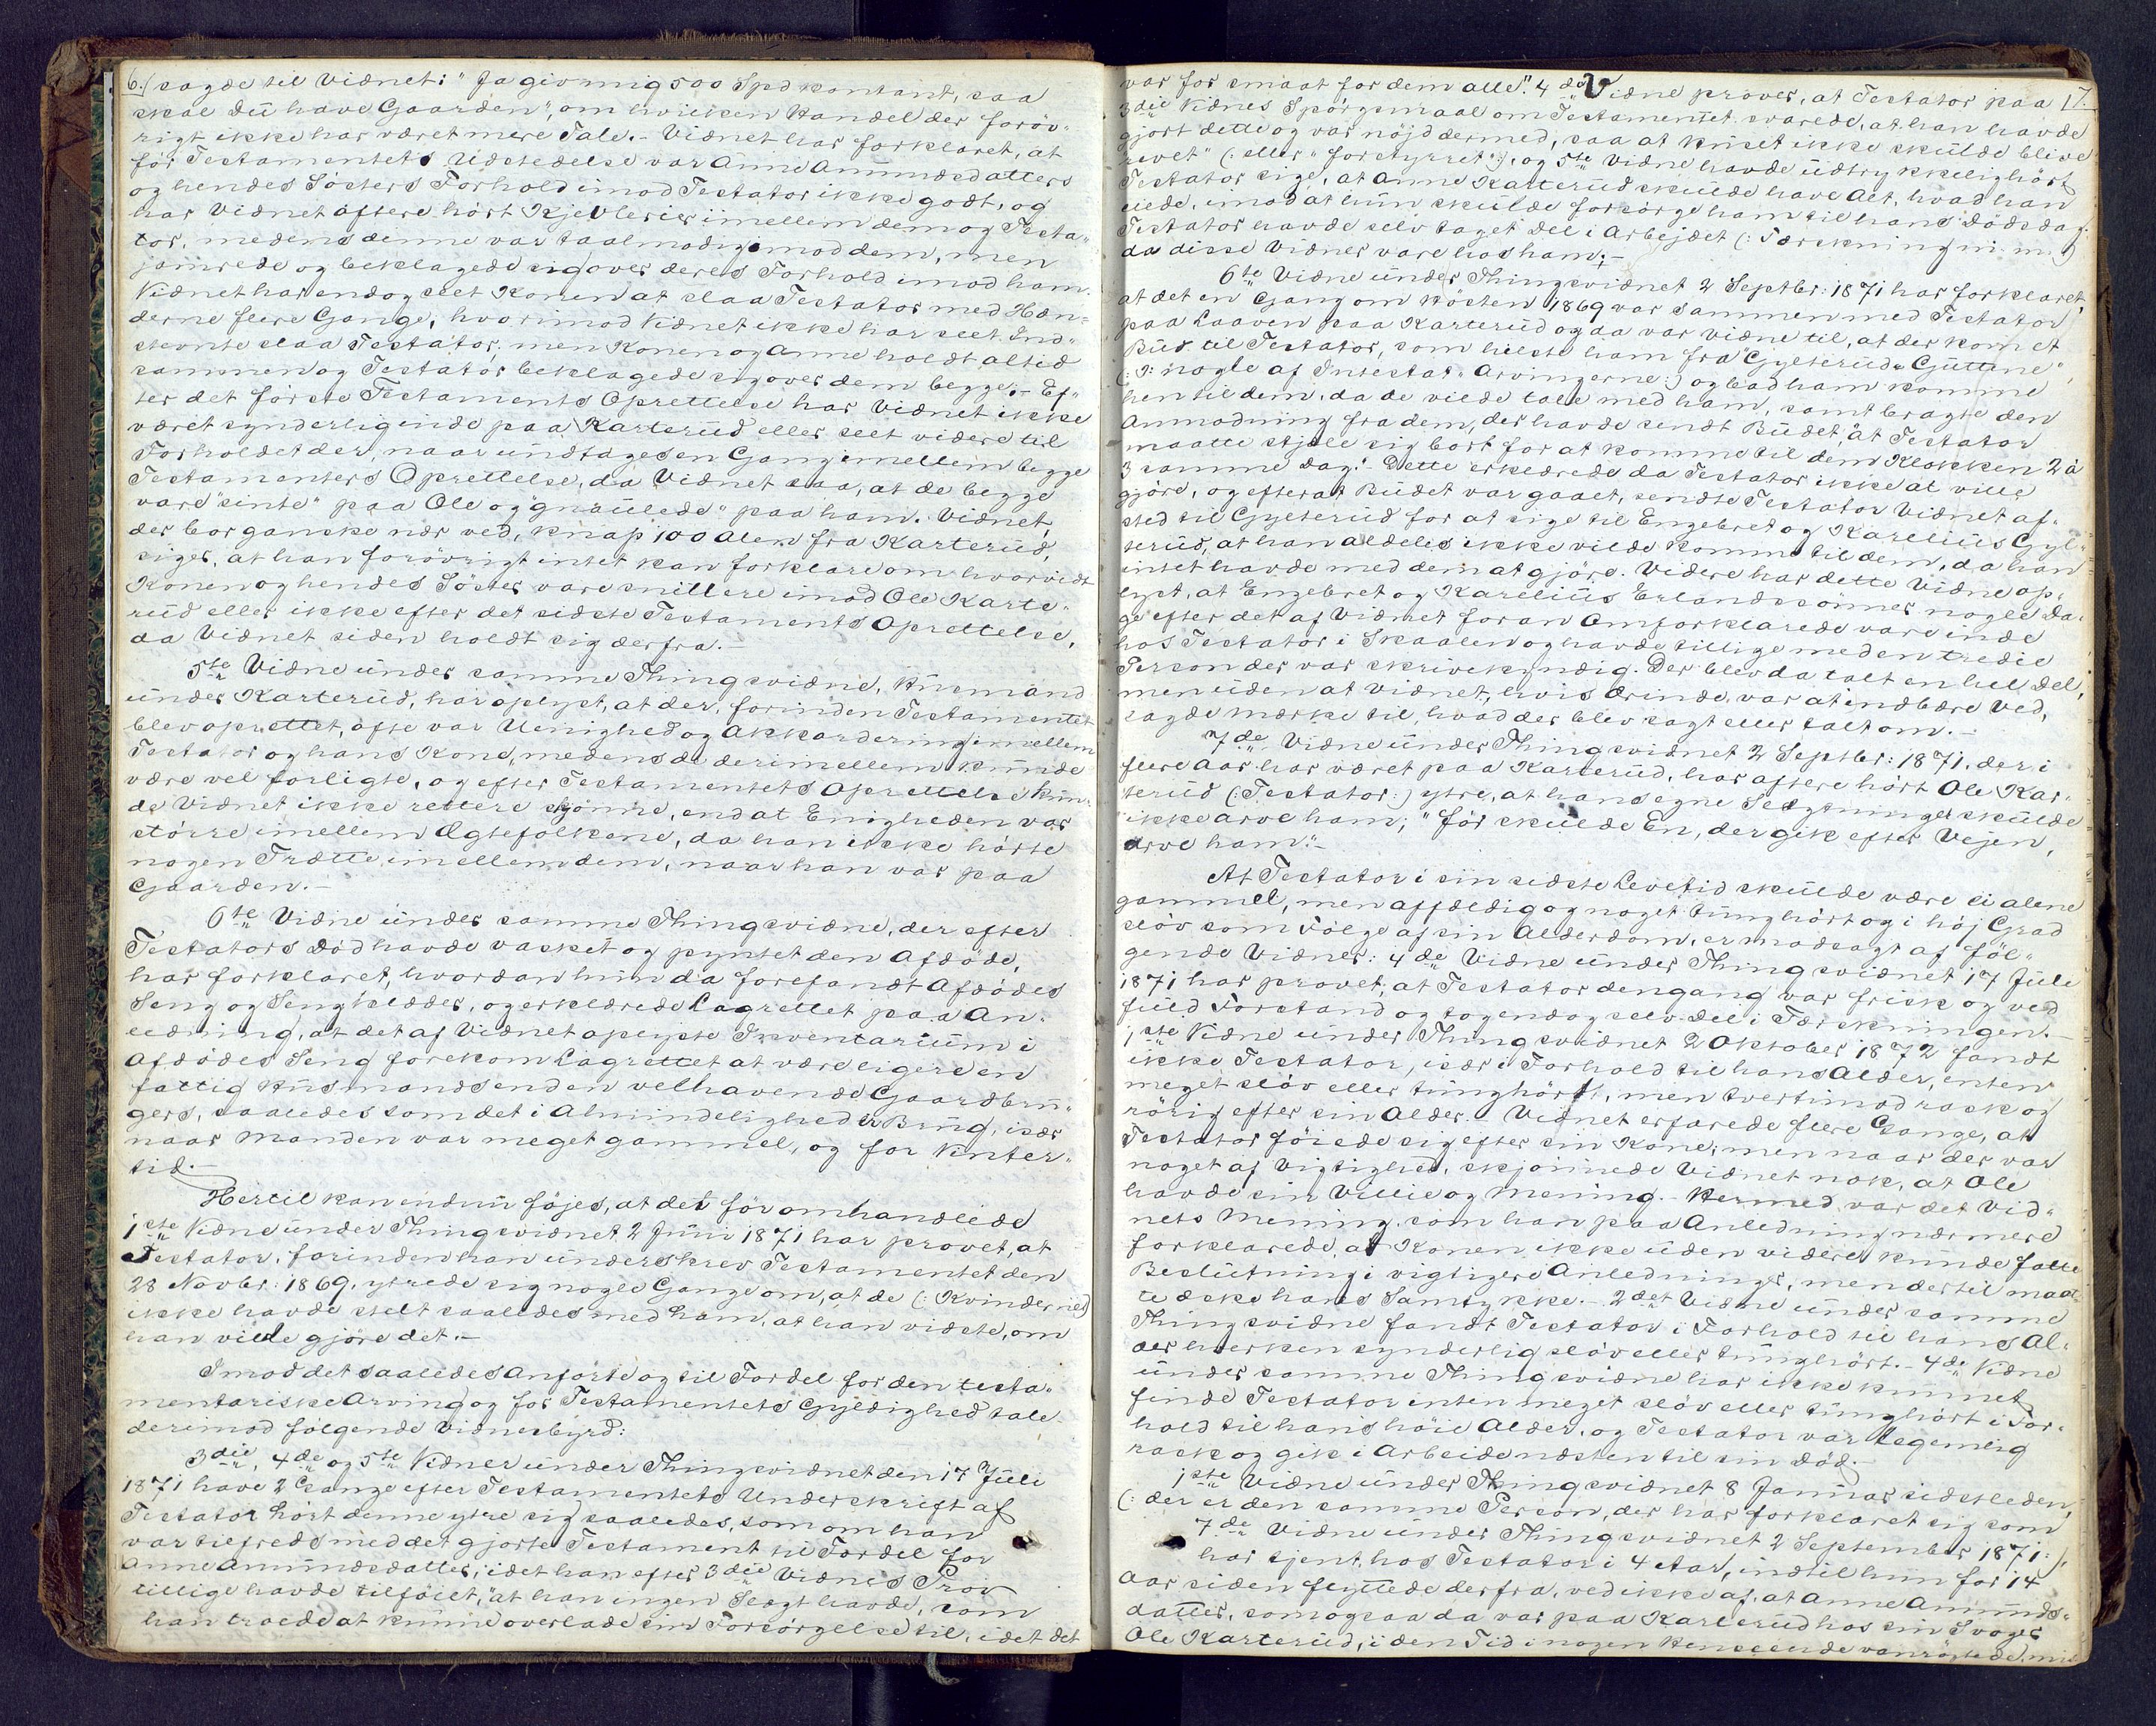 6.
sagde til Vidnet: "Ja giv mig 500 Spd kontant, saa
skal Du have Gaarden", om hvilken Handel der forøv-
rigt ikke har været mere Tale. - Vidnet har forklaret, at
før Testamentets Udstedelse var Anne Amundsdatters
og hendes Søsters Forhold imod Testator ikke godt, og
har Vidnet oftere hørt Kjevlerier imellem dem og Testa-
tor, medens denne var taalmodig imod dem, men
jamrede og beklagede sig over deres Forhold imod ham.
Vidnet har endog seet Konen at slaa Testator med Hæn-
derne flere Gange, hvorimod Vidnet ikke har seet Ind-
stevnte slaa Testator; men Konen og Anne holdt altid
sammen og Testator beklagede sig over dem begge. - Ef-
ter det første Testaments Oprettelse har Vidnet ikke
været synderlig inde paa Karterud eller seet videre til
Forholdet der, naar undtages en Gang imellem begge
Testamenters Oprettelse, da Vidnet saa, at de begge
vare "sinte" paa Ole og "gnaulede" paa ham. Vidnet,
der bor ganske nær ved, knap 100 Alen fra Karterud,
siger, at han forøvrigt intet kan forklare om hvorvidt
Konen og hendes Søster vare snillere imod Ole Karte-
rud eller ikke efter det sidste Testaments Oprettelse,
da Vidnet siden holdt sig derfra. -
5te Vidne under samme Thingsvidne, Husmand
under Karterud, har oplyst, at der, forinden Testamentet
blev oprettet, ofte var Uenighed og Akkordering imellem
Testator og hans Kone, medens de derimellem kunde
være vel forligte, og efter Testamentets Oprettelse kun-
de Vidnet ikke rettere skjønne, end at Enigheden var
større imellem Ægtefolkene, da han ikke hørte
nogen Trætte imellem dem, naar han var paa
Gaarden. -
6te Vidne under samme Thingsvidne, der efter
Testators Død havde vasket og pyntet den Afdøde,
har forklaret, hvordan hun da forefandt Afdødes
Seng og Sengklæder, og erklærede Lagrettet paa An-
ledning, at det af Vidnet oplyste Inventarium i
Afdødes Seng forekom Lagrettet at være ligere en
fattig Husmands end en velhavende Gaardbru-
gers, saaledes som det i Almindelighed er Brug, især
naar Manden var meget gammel, og for Vinter-
tid. -
Hertil kan endnu føjes, at det før omhandlede
1ste Vidne under Thingsvidnet 2 Juni 1871 har provet, at
Testator, forinden han underskrev Testamentet den
28 Novbr: 1869, ytrede sig nogle Gange om, at de (: Kvinderne :)
ikke havde stelt saaledes med ham, at han vidste, om
han vilde gjøre det. -
Imod det saaledes Anførte og til Fordel for den testa-
mentariske Arving og for Testamentets Gyldighed tale
derimod følgende Vidnesbyrd:
3die, 4de og 5te Vidner under Thingsvidnet den 17 Juli
1871 have 2 Gange efter Testamentets Underskrift af
Testator hørt denne ytre sig saaledes, som om han
var tilfreds med det gjorte Testament til Fordel for
Anne Amundsdatter, idet han efter 3die Vidnes Prov
tillige havde tilføiet, "at han ingen Slægt havde, som
han troede at kunne overlade sin Forsørgelse til, idet det
7.
var for smaat for dem alle". 4de Vidne prover, at Testator paa
3die Vidnes Spørgsmaal om Testamentet svarede, at han havde
gjort dette og var nøjd dermed, saa at Huset ikke skulde blive
revet" (: eller "forstyrret" :), og 5te Vidne havde udtrykkelig hørt
Testator sige, at Anne Karterud skulde have Alt, hvad han
eiede, imod at hun skulde forsørge ham til hans Dødsdag.
Testator havde selv taget Del i Arbejdet (: Tærskning m. m. :)
da disse Vidner vare hos ham; -
6te Vidne under Thingsvidnet 2 Septbr: 1871 har forklaret,
at det en Gang om Høsten 1869 var sammen med Testator
paa Laaven paa Karterud og da var Vidne til, at der kom et
Bud til Testator, som hilste ham fra "Gylterud-Guttene",
(: ɔ: nogle af Intestat-Arvingerne :) og bad ham komme
hen til dem, da de vilde tale med ham, samt bragte den
Anmodning fra dem, der havde sendt Budet, "at Testator
maatte stjæle sig bort for at komme til dem Klokken 2 à
3 samme Dag". - Dette erklærede da Testator ikke at ville
gjøre, og efterat Budet var gaaet, sendte Testator Vidnet af-
sted til Gylterud for at sige til Engebret og Karelius Gyl-
terud, at han aldeles ikke vilde komme til dem, da han
intet havde med dem at gjøre. Videre har dette Vidne op-
lyst, at Engebret og Karelius Erlandssønner nogle Da-
ge efter det af Vidnet foran Omforklarede vare inde
hos Testator i Skaalen og havde tillige med en tredie
Person der var skrivekyndig. Der blev da talt en hel Del,
men uden at Vidnet, hvis Ærinde var at indbære Ved,
lagde Mærke til, hvad der blev sagt eller talt om. -
7de Vidne under Thingsvidnet 2 Septbr: 1871, der i
flere Aar har været paa Karterud, har oftere hørt Ole Kar-
terud (: Testator :) ytre, at hans egne Slægtninger skulde
ikke arve ham; "før skulde En, der gik efter Vejen,
arve ham". -
At Testator i sin sidste Levetid skulde være ei alene
gammel, men affældig og noget tunghørt og i høj Grad
sløv som Følge af sin Alderdom, er modsagt af føl-
gende Vidner: 4de Vidne under Thingsvidnet 17 Juli
1871 har provet, at Testator dengang var frisk og ved
fuld Forstand og tog endog selv Del i Tærskningen. -
1ste Vidne under Thingsvidnet 2 Oktober 1872 fandt
ikke Testator, især i Forhold til hans Alder, enten
meget sløv eller tunghørt, men tvertimod rask og
rørig efter sin Alder. - Vidnet erfarede flere Gange, at
Testator føiede sig efter sin Kone; men naar der var
noget af Vigtighed, skjønnede Vidnet nok, at Ole
havde sin Villie og Mening. - Hermed var det Vid-
nets Mening, som han paa Anledning nærmere
forklarede, at Konen ikke uden videre kunde fatte
Beslutning i vigtigere Anledninger, men dertil maat-
te æske hans Samtykke. - 2det Vidne under samme
Thingsvidne fandt Testator i Forhold til hans Al-
der hverken synderlig sløv eller tunghørt. - 4de Vidne
under samme Thingsvidne har ikke kunnet
finde Testator enten meget sløv eller tunghørt i For-
hold til hans høie Alder, og Testator var legemlig
rask og gik i Arbeide næsten til sin Død. -
1ste Vidne under Thingsvidnet 8 Januar sidstleden,
(: der er den samme Person, der har forklaret sig som
7de Vidne under Thingsvidnet 2 September 1871: ),
har tjent hos Testator i 4 Aar, indtil hun for 14
Aar siden flyttede derfra, ved ikke af, at Anne Amunds-
datter, som ogsaa da var paa Karterud hos sin Svoger
Ole Karterud, i den Tid i nogen Henseende vanrøgtede,